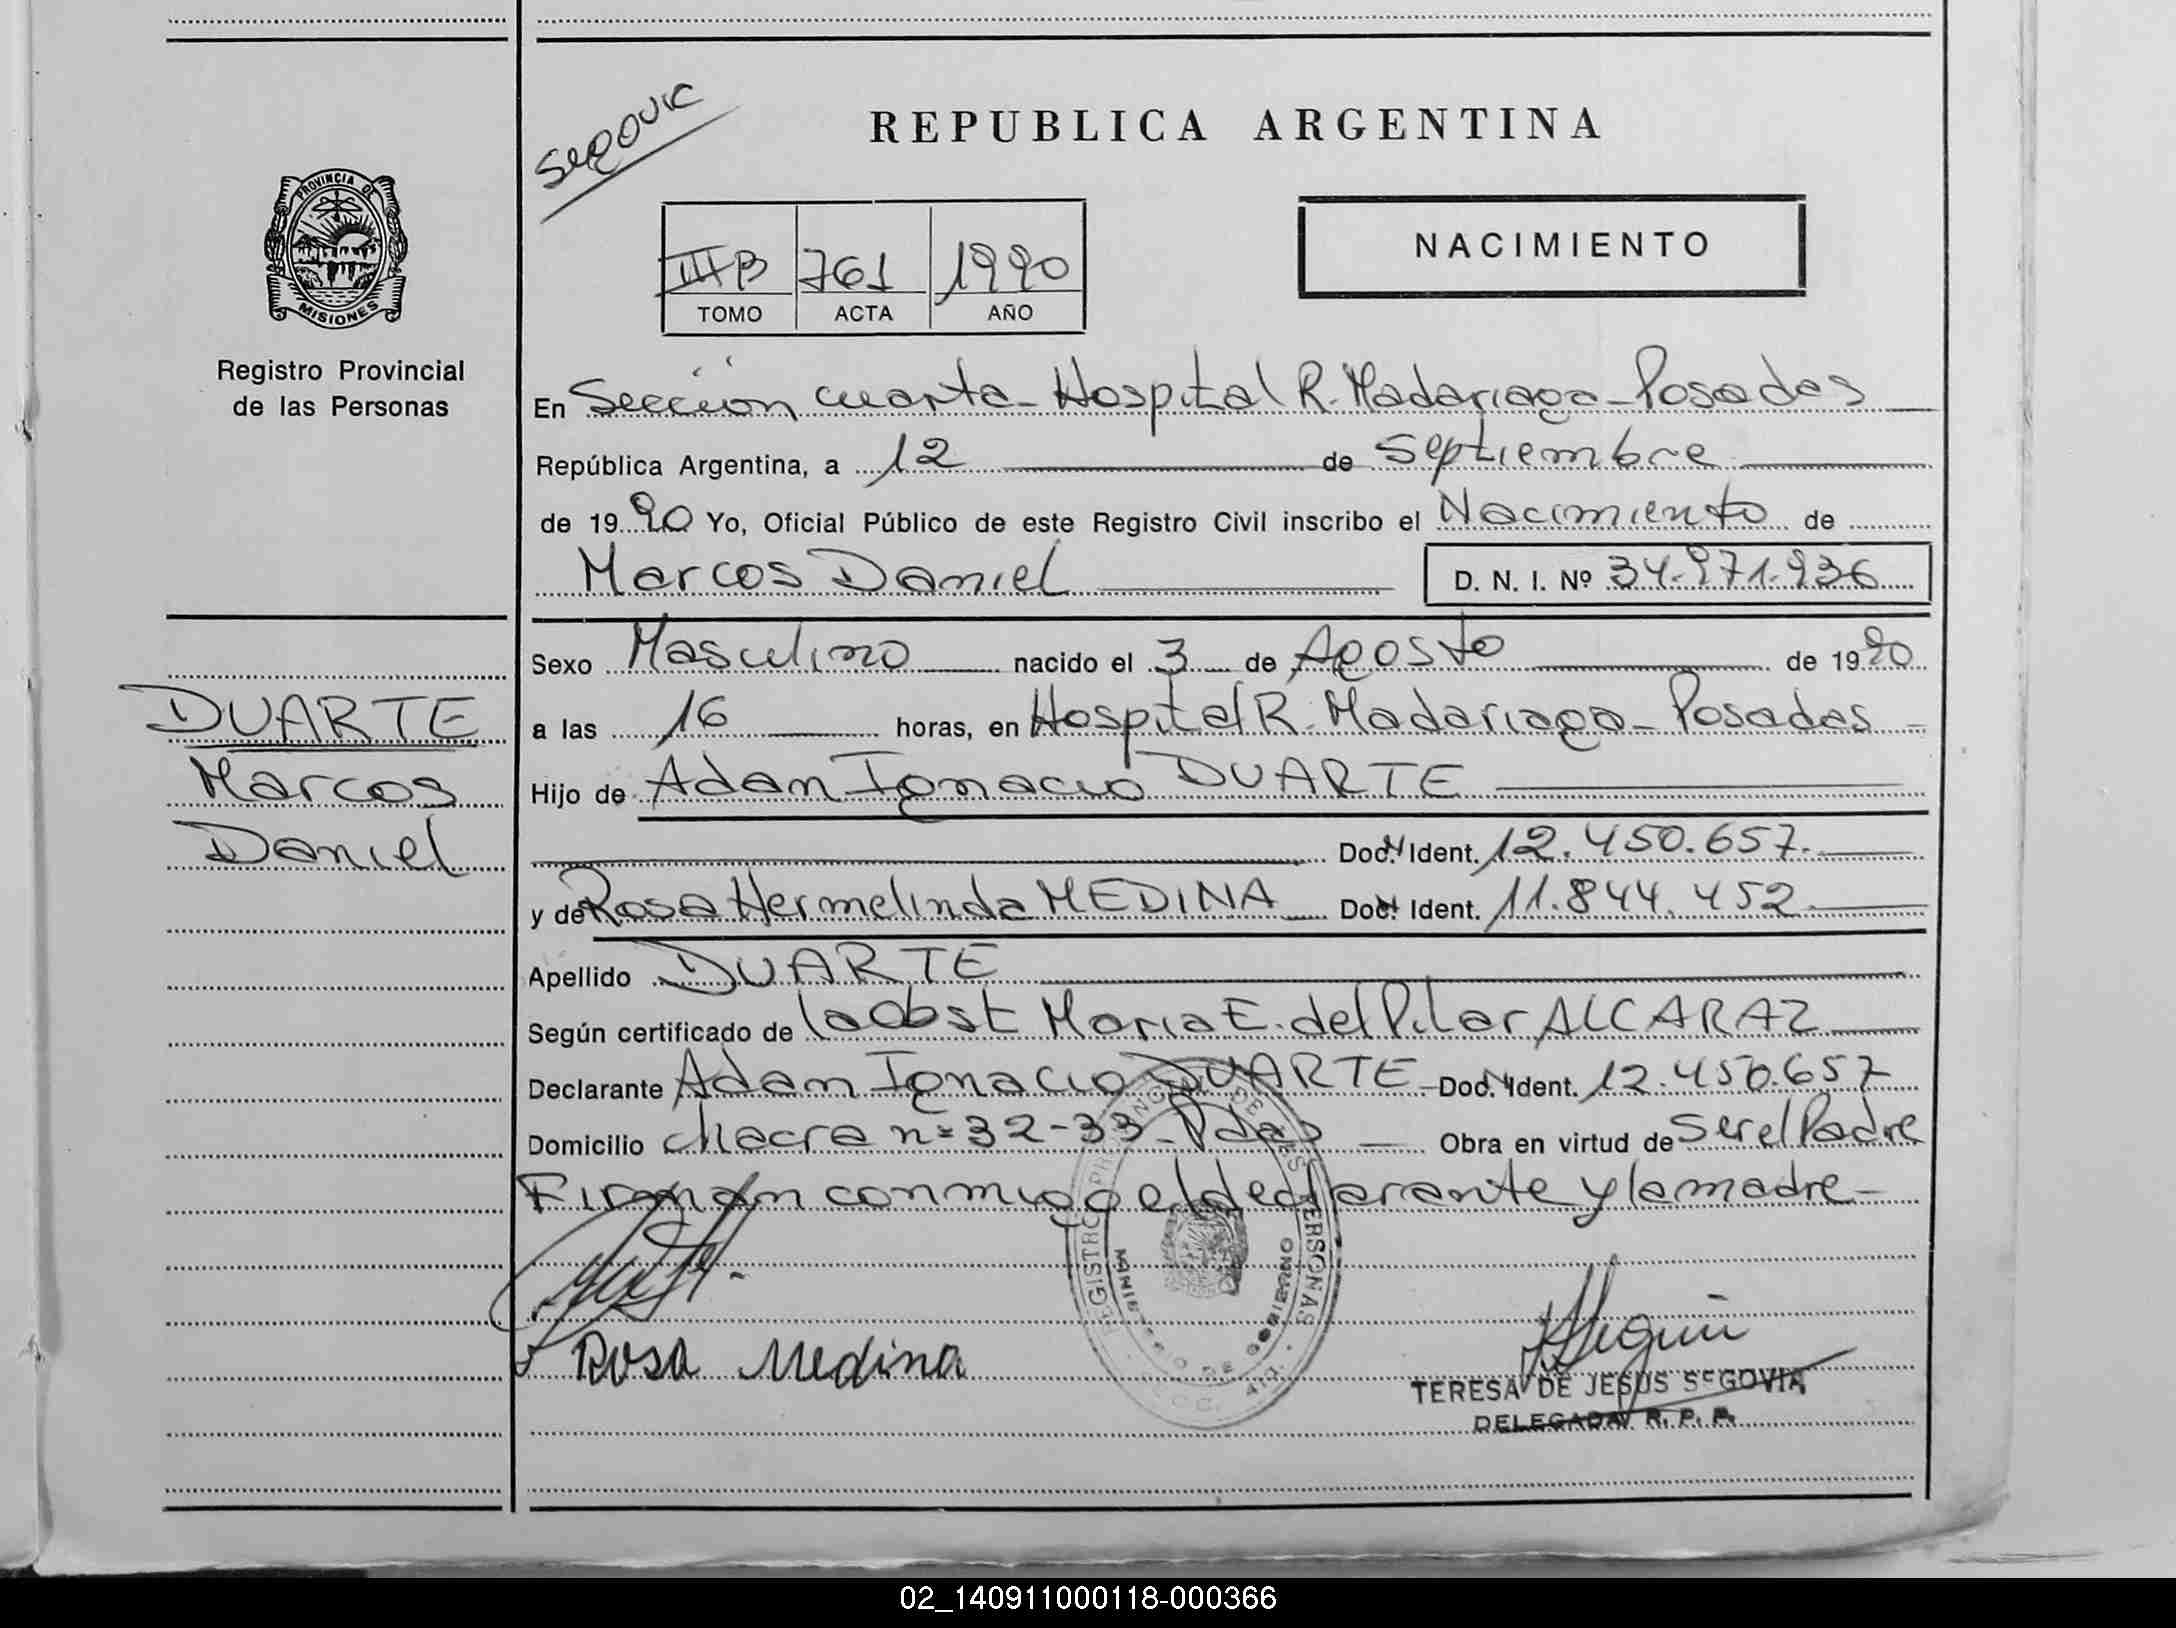 Segovia
REPUBLICA ARGENTINA
PROVINCIA DE
MISIONES
Registro Provincial
de las Personas
III B 761 1990
TOMO ACTA AÑO
NACIMIENTO
En Sección cuarta - Hospital R. Madariaga - Posadas
República Argentina, a 12 de Septiembre
de 1990 Yo, Oficial Público de este Registro Civil inscribo el Nacimiento de
Marcos Daniel D. N. I. Nº 34.971.936
Sexo Masculino nacido el 3 de Agosto de 1990
a las 16 horas, en Hospital R. Madariaga - Posadas
Hijo de Adan Ignacio DUARTE
Doc. Ident. 12.450.657.
y de Rosa Hermelinda MEDINA Doc. Ident. 11.844.452
Apellido DUARTE
Según certificado de la Obst Maria E. del Pilar ALCARAZ
Declarante Adan Ignacio DUARTE Doc. Ident. 12.450.657
Domicilio Chacra nº 32-33 - Pdas Obra en virtud de Ser el Padre
Firman conmigo el declarante y la madre -
DUARTE
Marcos
Daniel
REGISTRO PROVINCIAL DE LAS PERSONAS
DE GOBIERNO
Rosa Medina
TERESA DE JESUS SEGOVIA
DELEGADA R. P. P.
02_140911000118-000366